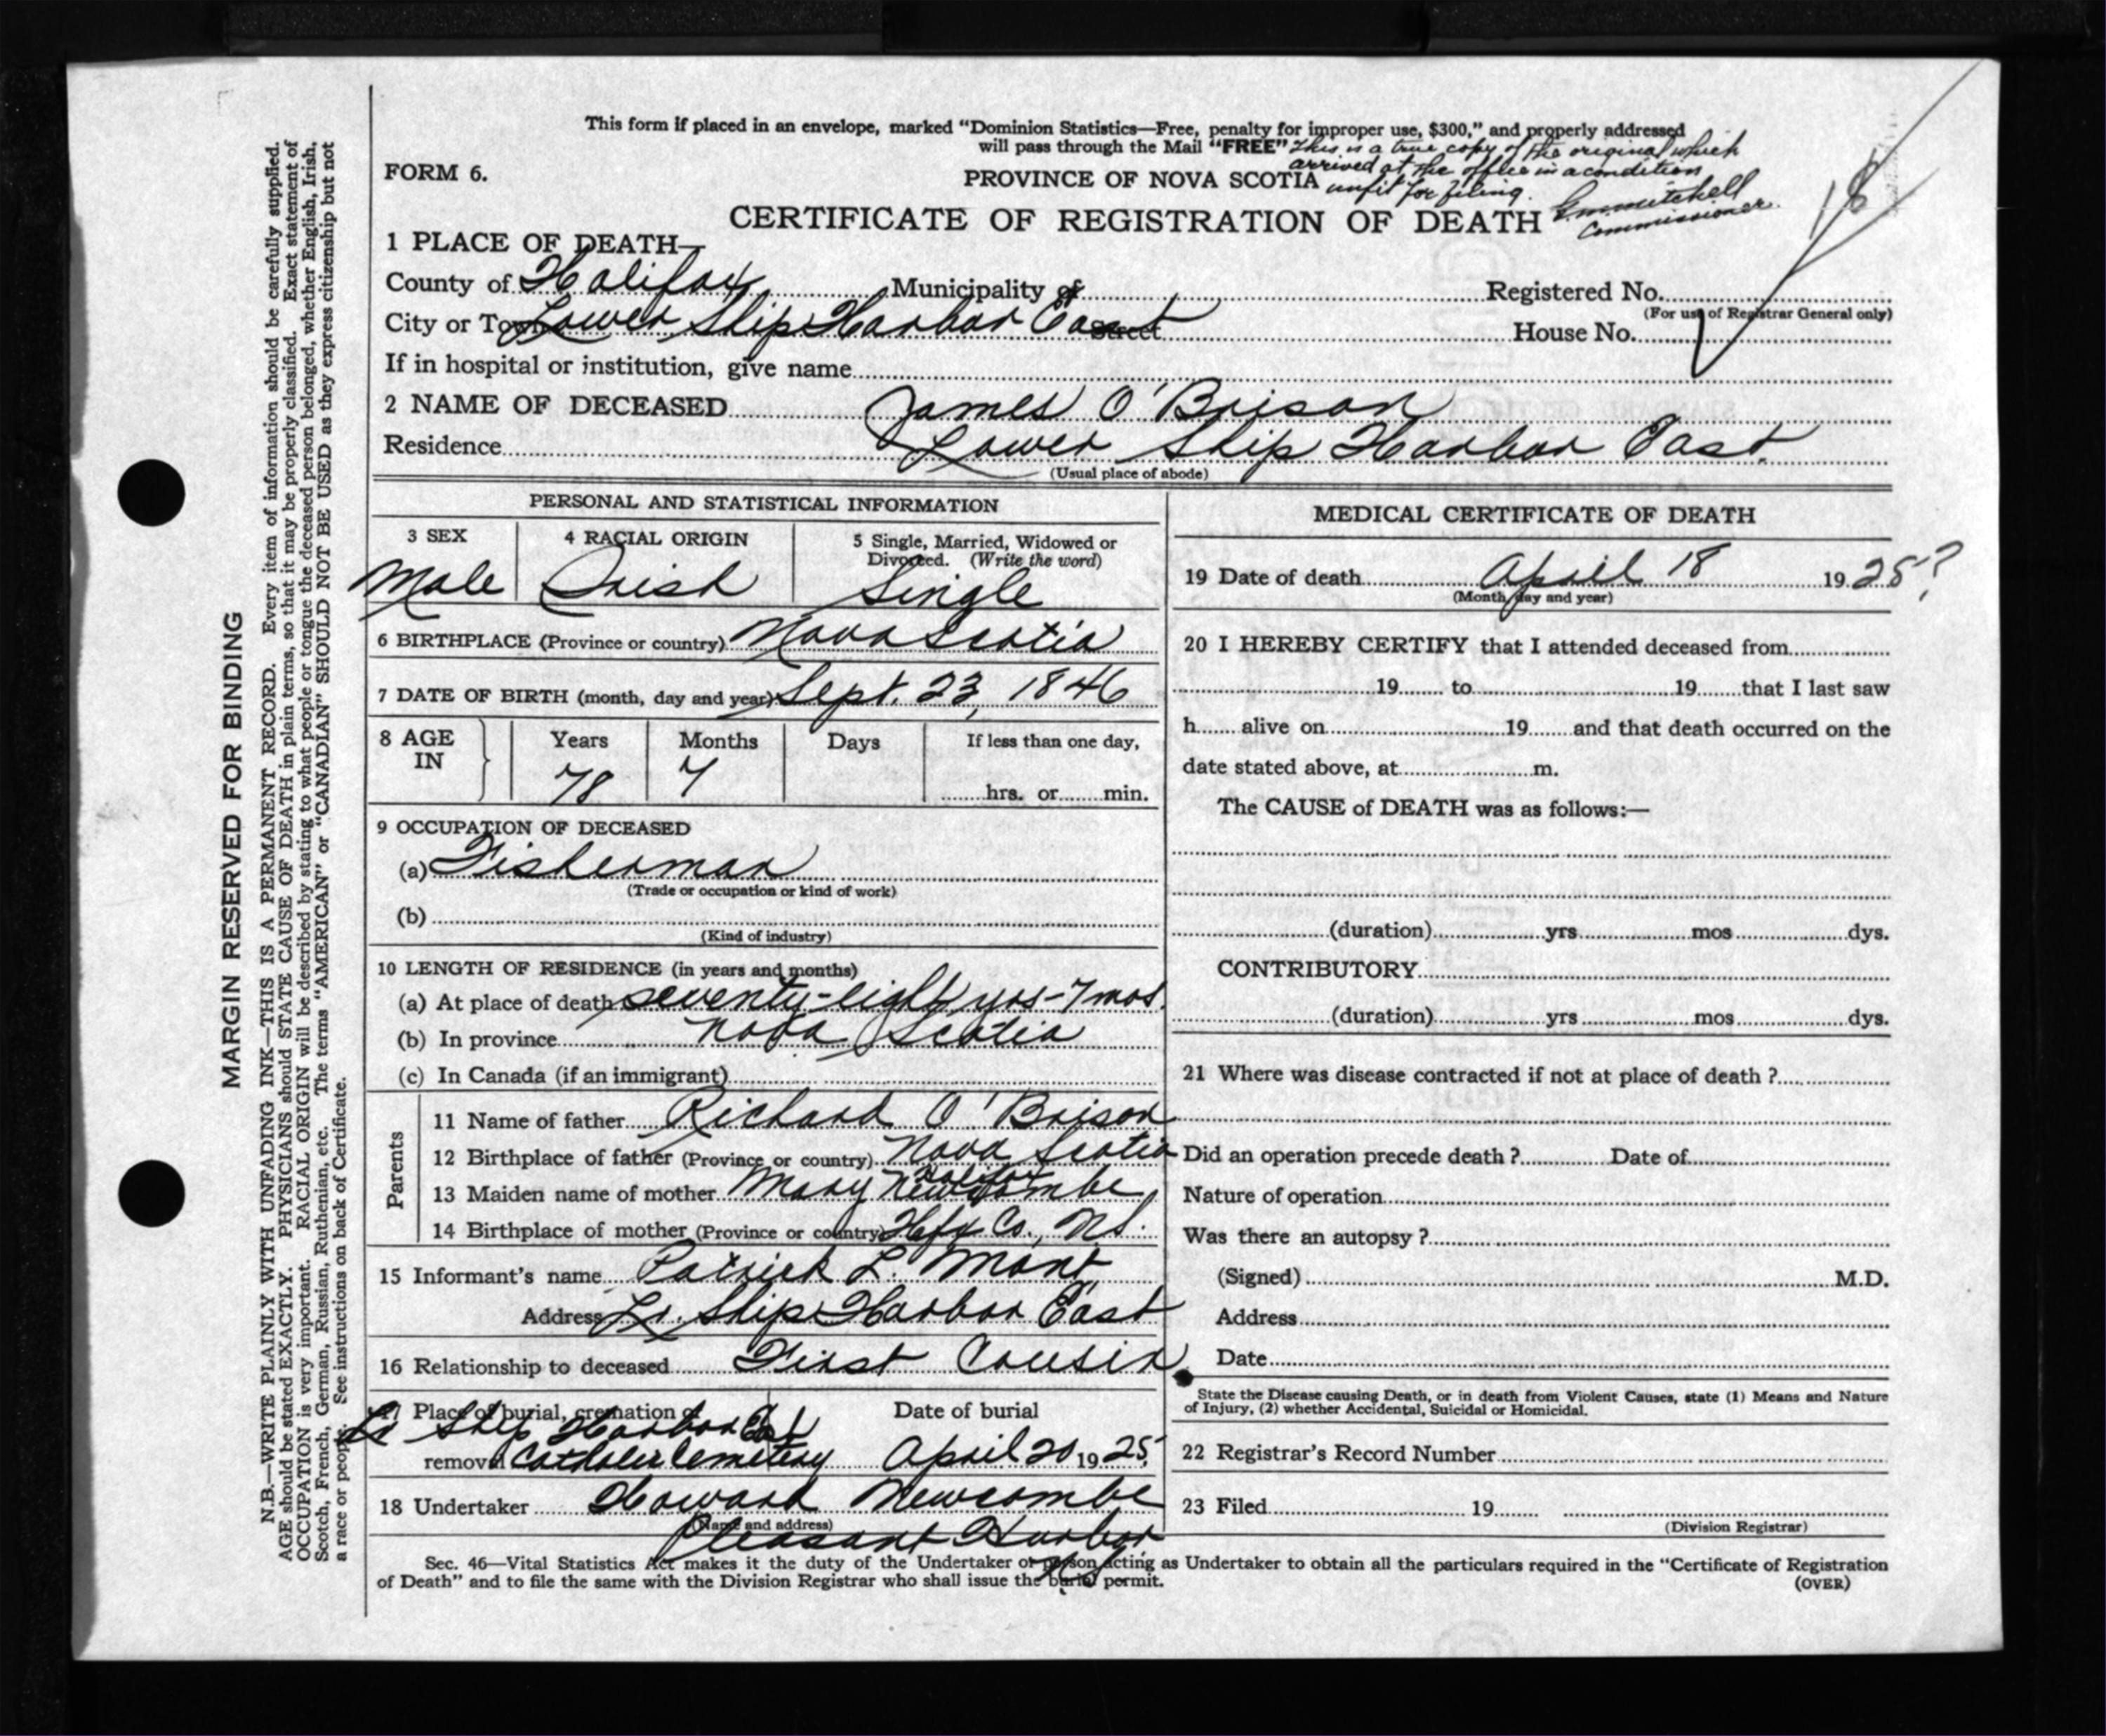 This form if placed in an envelope, marked "Dominion Statistics—Free, penalty for improper use, $300," and properly addressed
will pass through the Mail "FREE" This is a true copy of the original which
arrived at the office in a condition
unfit for filing.
FORM 6.
PROVINCE OF NOVA SCOTIA
CERTIFICATE OF REGISTRATION OF DEATH
Commissioner.
1 PLACE OF DEATH—
County of Halifax Municipality of Registered No.
(For use of Registrar General only)
City or Town Lower Ship Harbor East Street House No.
If in hospital or institution, give name
2 NAME OF DECEASED James O'Brison
Residence Lower Ship Harbor East.
(Usual place of abode)
PERSONAL AND STATISTICAL INFORMATION
3 SEX 4 RACIAL ORIGIN 5 Single, Married, Widowed or
Divorced. (Write the word)
Male Irish Single
6 BIRTHPLACE (Province or country) Nova Scotia
7 DATE OF BIRTH (month, day and year) Sept. 23, 1846
8 AGE IN Years Months Days If less than one day,
78 7 hrs. or min.
9 OCCUPATION OF DECEASED
(a) Fisherman
(Trade or occupation or kind of work)
(b)
(Kind of industry)
10 LENGTH OF RESIDENCE (in years and months)
(a) At place of death seventy-eight yrs-7 mos.
(b) In province Nova Scotia
(c) In Canada (if an immigrant)
Parents
11 Name of father Richard O'Brison
12 Birthplace of father (Province or country) Nova Scotia
13 Maiden name of mother Mary Newcombe
14 Birthplace of mother (Province or country) Hfx Co., N.S.
15 Informant's name Patrick L. Mont
Address Lr. Ship Harbor East
16 Relationship to deceased First Cousin
17 Place of burial, cremation or Date of burial
Lr Ship Harbor East
removal Catholic Cemetery April 20 1925
18 Undertaker Howard Newcombe
(Name and address)
Pleasant Harbor
NS
MEDICAL CERTIFICATE OF DEATH
19 Date of death April 18 1925?
(Month, day and year)
20 I HEREBY CERTIFY that I attended deceased from
19 to 19 that I last saw
h alive on 19 and that death occurred on the
date stated above, at m.
The CAUSE of DEATH was as follows:—
(duration) yrs mos dys.
CONTRIBUTORY
(duration) yrs mos dys.
21 Where was disease contracted if not at place of death ?
Did an operation precede death ? Date of
Nature of operation
Was there an autopsy ?
(Signed) M.D.
Address
Date
State the Disease causing Death, or in death from Violent Causes, state (1) Means and Nature
of Injury, (2) whether Accidental, Suicidal or Homicidal.
22 Registrar's Record Number
23 Filed 19
(Division Registrar)
Sec. 46—Vital Statistics Act makes it the duty of the Undertaker or person acting as Undertaker to obtain all the particulars required in the "Certificate of Registration
of Death" and to file the same with the Division Registrar who shall issue the burial permit.
(OVER)
MARGIN RESERVED FOR BINDING
N.B.—WRITE PLAINLY WITH UNFADING INK—THIS IS A PERMANENT RECORD. Every item of information should be carefully supplied.
AGE should be stated EXACTLY. PHYSICIANS should STATE CAUSE OF DEATH in plain terms, so that it may be properly classified. Exact statement of
OCCUPATION is very important. RACIAL ORIGIN will be described by stating to what people or tongue the deceased person belonged, whether English, Irish,
Scotch, French, German, Russian, Ruthenian, etc. The terms "AMERICAN" or "CANADIAN" SHOULD NOT BE USED as they express citizenship but not
a race or people. See instructions on back of Certificate.